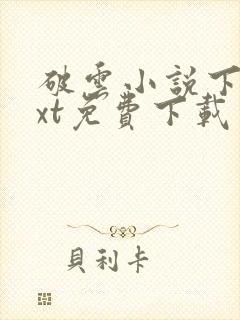 破雲小說下
xt免費下載
貝利卡